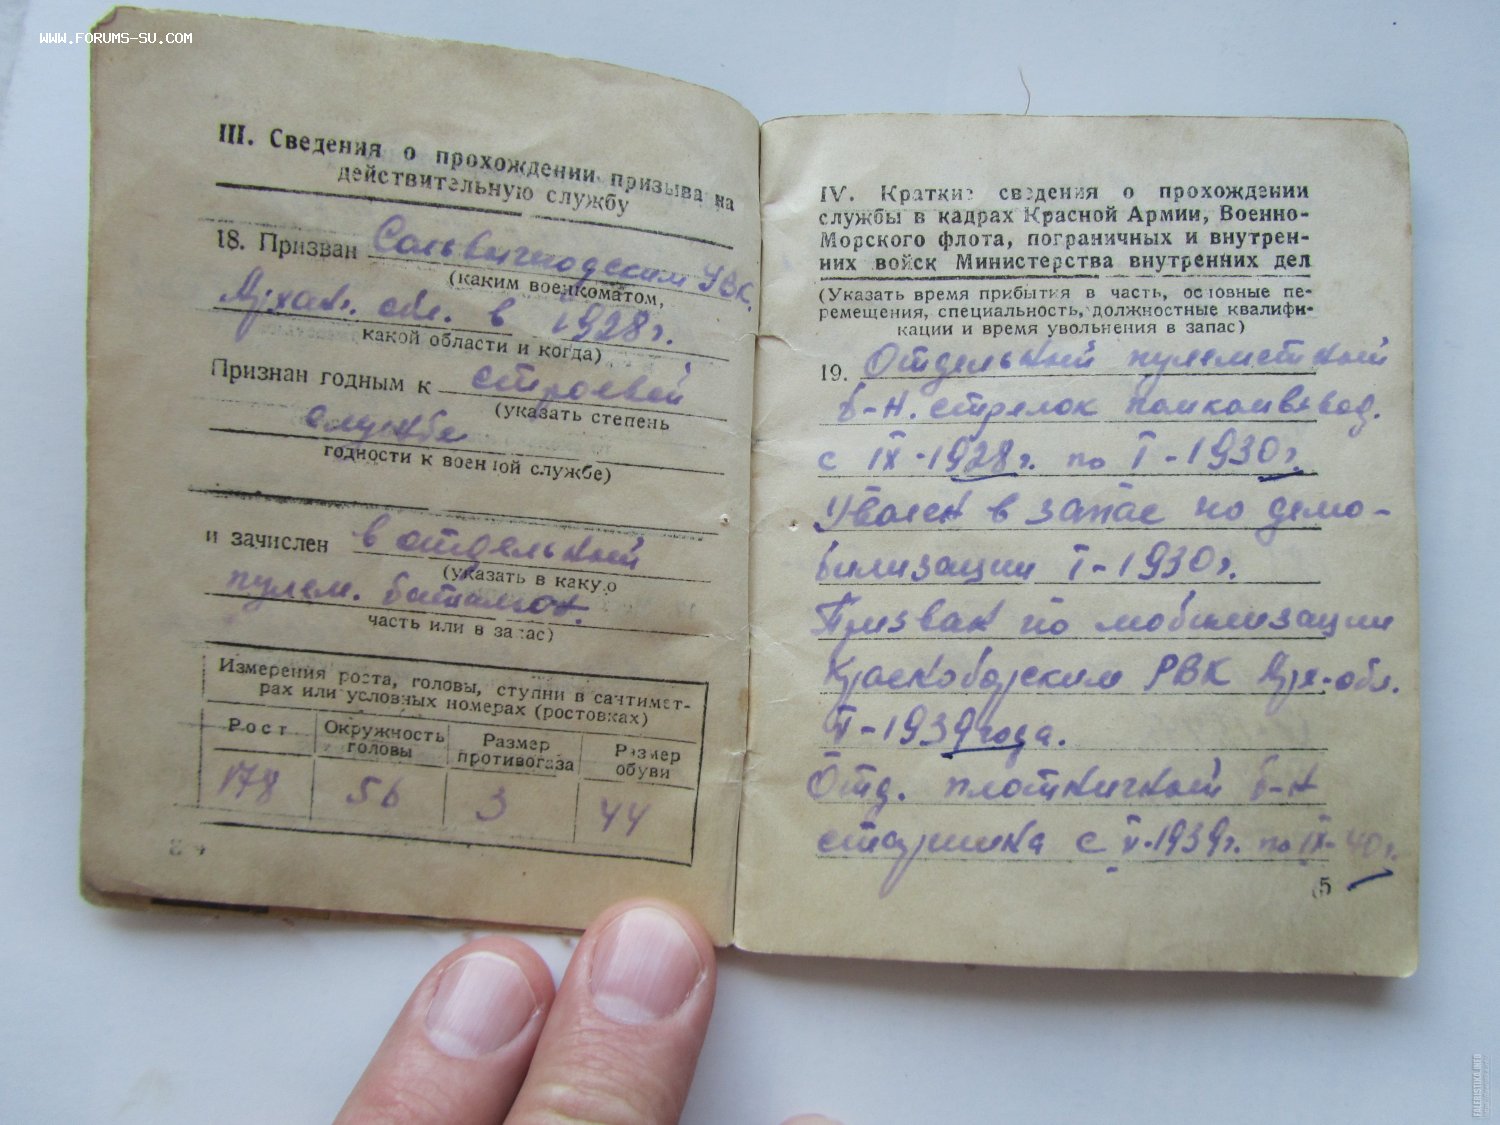 www.forums-su.com
III. Сведения о прохождении призыва на
действительную службу
18. Призван Сольвычегодским УВК,
(каким военкоматом,
Архан. обл. в 1928г.
какой области и когда)
Признан годным к строевой
(указать степень
службе
годности к военной службе)
и зачислен в отдельный
(указать в какую
пулем. батальон.
часть или в запас)
Измерения роста, головы, ступни в сантимет-
рах или условных номерах (ростовках)
Рост Окружность головы Размер противогаза Размер обуви
178 56 3 44
IV. Краткие сведения о прохождении
службы в кадрах Красной Армии, Военно-
Морского флота, пограничных и внутрен-
них войск Министерства внутренних дел
(Указать время прибытия в часть, основные пе-
ремещения, специальность, должностные квалифи-
кации и время увольнения в запас)
19. Отдельный пулеметный
б-н. стрелок помкомввод.
с IX-1928г. по I-1930г.
Уволен в запас по демо-
билизации I-1930г.
Призван по мобилизации
Красноборским РВК Арх-обл.
-1939 года.
Отд. плотничный б-н
старшина с -1939г. по IX-40г.
5
FALERISTIKA.INFO